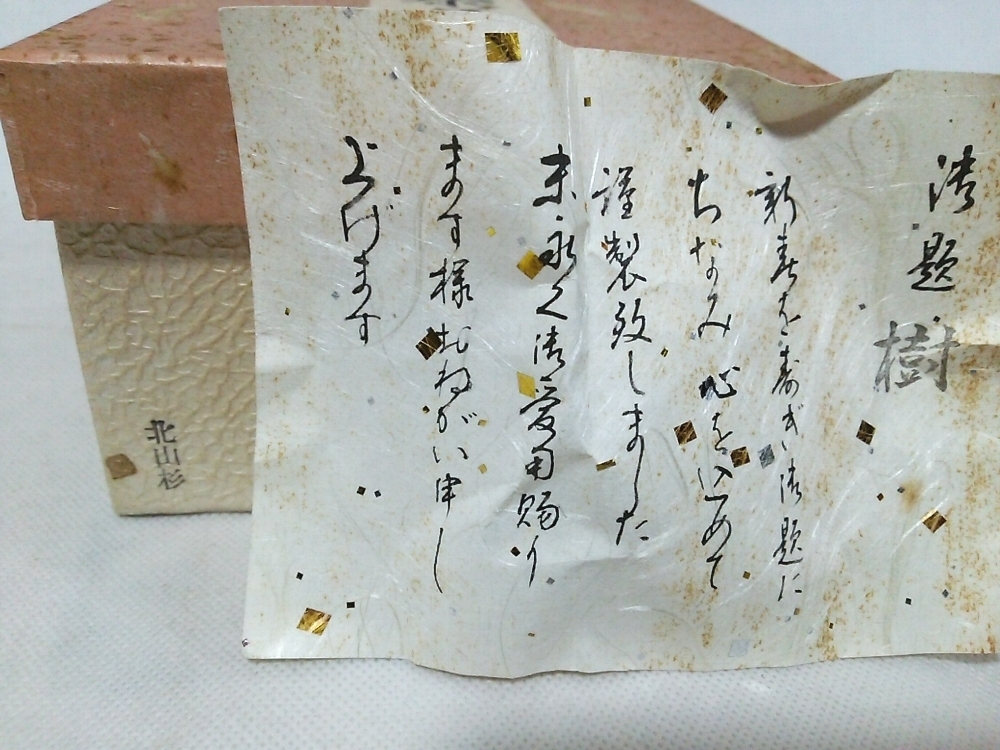 御題
樹
新春を寿ぎ御題に
ちなみ 心を込めて
謹製致しました
末永く御愛用賜り
ます様おねがい申し
上げます
北山杉